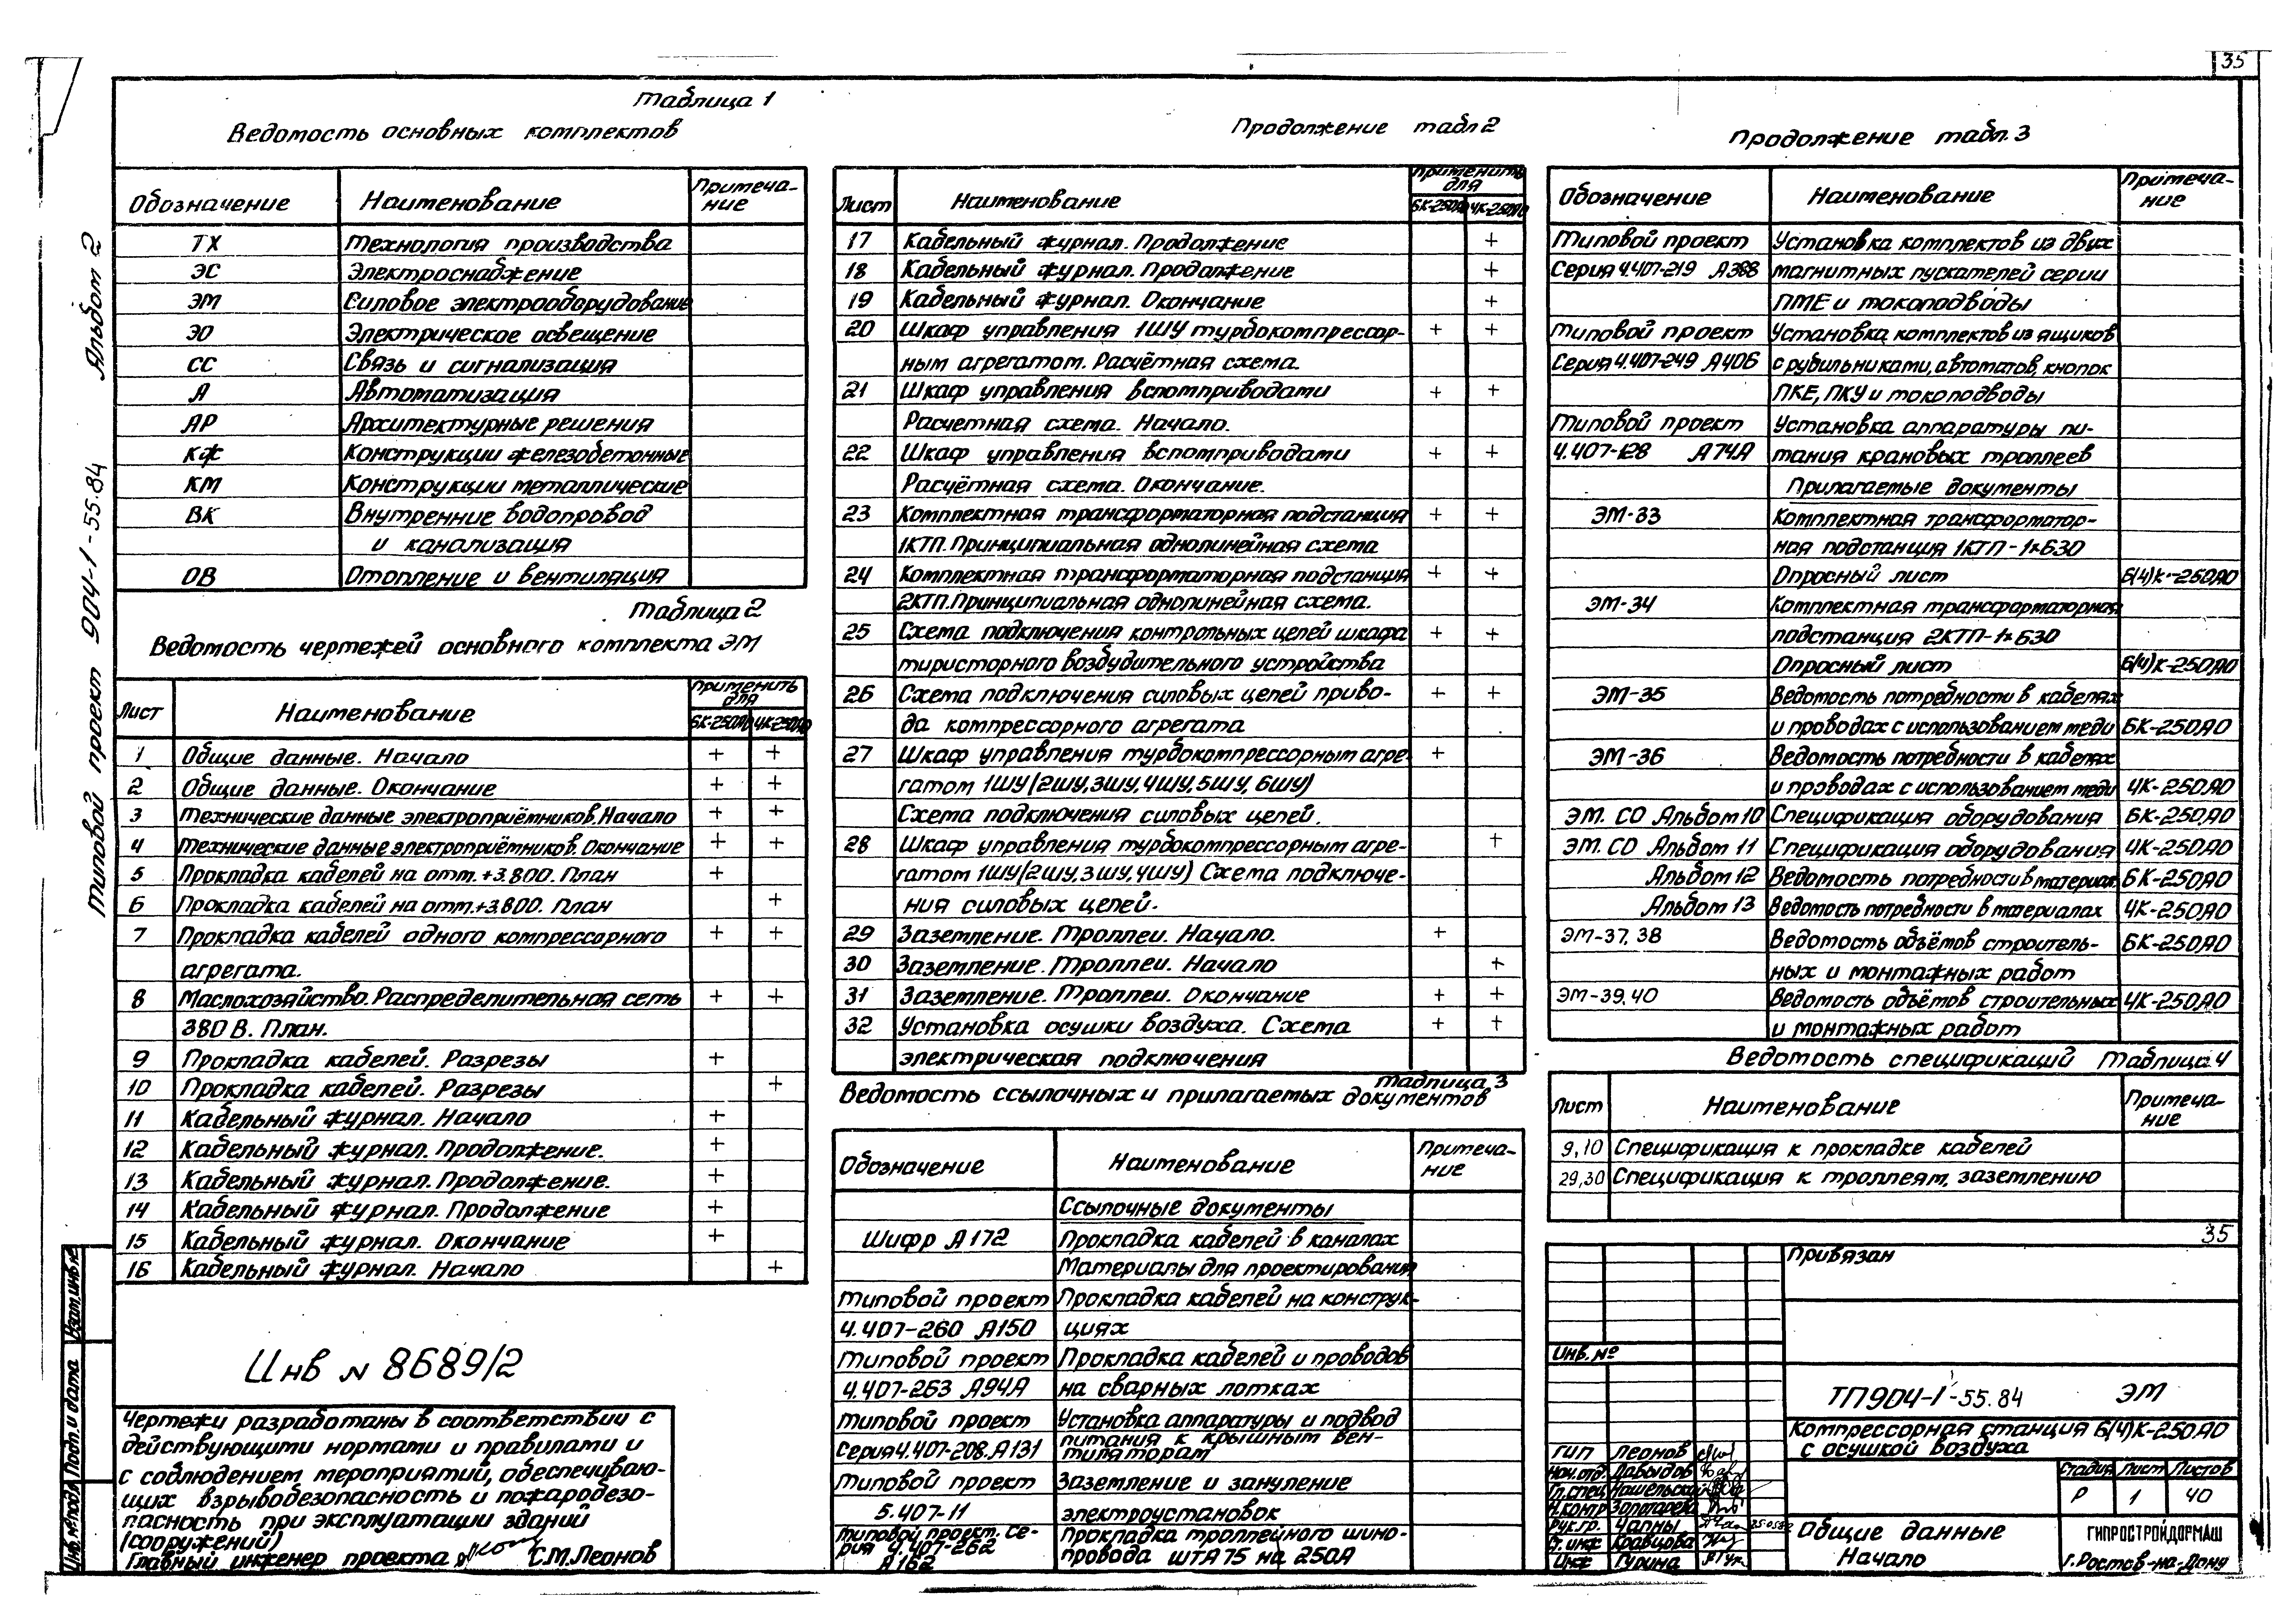 35
Таблица 1
Ведомость основных комплектов
Обозначение Наименование Примеча-
ние
ТХ Технология производства
ЭС Электроснабжение
ЭМ Силовое электрооборудование
ЭО Электрическое освещение
СС Связь и сигнализация
А Автоматизация
АР Архитектурные решения
КЖ Конструкции железобетонные
КМ Конструкции металлические
ВК Внутренние водопровод
и канализация
ОВ Отопление и вентиляция
Таблица 2
Ведомость чертежей основного комплекта ЭМ
Лист Наименование Применить
для
6К-250А0 4К-250А0
1 Общие данные. Начало + +
2 Общие данные. Окончание + +
3 Технические данные электроприёмников. Начало + +
4 Технические данные электроприёмников. Окончание + +
5 Прокладка кабелей на отм. +3.800. План +
6 Прокладка кабелей на отм. +3.800. План +
7 Прокладка кабелей одного компрессорного + +
агрегата.
8 Маслохозяйство. Распределительная сеть + +
380 В. План.
9 Прокладка кабелей. Разрезы +
10 Прокладка кабелей. Разрезы +
11 Кабельный журнал. Начало +
12 Кабельный журнал. Продолжение. +
13 Кабельный журнал. Продолжение. +
14 Кабельный журнал. Продолжение +
15 Кабельный журнал. Окончание +
16 Кабельный журнал. Начало +
Инв N 8689/2
Чертежи разработаны в соответствии с
действующими нормами и правилами и
с соблюдением мероприятий, обеспечиваю-
щих взрывобезопасность и пожаробезо-
пасность при эксплуатации зданий
(сооружений)
Главный инженер проекта С.М.Леонов
Типовой проект 904-1-55.84 Альбом 2
Инв.№подл Подп. и дата Взам.инв.№
Продолжение табл 2
Лист Наименование Применить
для
6К-250А0 4К-250А0
17 Кабельный журнал. Продолжение +
18 Кабельный журнал. Продолжение +
19 Кабельный журнал. Окончание +
20 Шкаф управления 1ШУ турбокомпрессор- + +
ным агрегатом. Расчётная схема.
21 Шкаф управления вспомприводами + +
Расчетная схема. Начало.
22 Шкаф управления вспомприводами + +
Расчётная схема. Окончание.
23 Комплектная трансформаторная подстанция + +
1КТП. Принципиальная однолинейная схема
24 Комплектная трансформаторная подстанция + +
2КТП. Принципиальная однолинейная схема.
25 Схема подключения контрольных цепей шкафа + +
тиристорного возбудительного устройства
26 Схема подключения силовых цепей приво- + +
да компрессорного агрегата
27 Шкаф управления турбокомпрессорным агре- +
гатом 1ШУ (2ШУ, 3ШУ, 4ШУ, 5ШУ, 6ШУ)
Схема подключения силовых цепей.
28 Шкаф управления турбокомпрессорным агре- +
гатом 1ШУ (2ШУ, 3ШУ, 4ШУ) Схема подключе-
ния силовых цепей.
29 Заземление. Троллеи. Начало. +
30 Заземление. Троллеи. Начало +
31 Заземление. Троллеи. Окончание + +
32 Установка осушки воздуха. Схема + +
электрическая подключения
Таблица 3
Ведомость ссылочных и прилагаемых документов
Обозначение Наименование Примеча-
ние
Ссылочные документы
Шифр А172 Прокладка кабелей в каналах
Материалы для проектирования
Типовой проект Прокладка кабелей на конструк-
4.407-260 А150 циях
Типовой проект Прокладка кабелей и проводов
4.407-263 А94А на сварных лотках
Типовой проект Установка аппаратуры и подвод
Серия 4.407-208. А131 питания к крышным вен-
тиляторам
Типовой проект Заземление и зануление
5.407-11 электроустановок
Типовой проект. Се- Прокладка троллейного шино-
рия 4.407-262 провода ШТА 75 на 250А
А162
Продолжение табл. 3
Обозначение Наименование Примеча-
ние
Типовой проект Установка комплектов из двух
Серия 4.407-219 А388 магнитных пускателей серии
ПМЕ и токоподводы
Типовой проект Установка комплектов из ящиков
Серия 4.407-249 А406 с рубильниками, автоматов, кнопок
ПКЕ, ПКУ и токоподводы
Типовой проект Установка аппаратуры пи-
4.407-128 А74А тания крановых троллеев
Прилагаемые документы
ЭМ-33 Комплектная трансформатор-
ная подстанция 1КТП-1×630
Опросный лист 6(4)К-250А0
ЭМ-34 Комплектная трансформаторная
подстанция 2КТП-1×630
Опросный лист 6(4)К-250А0
ЭМ-35 Ведомость потребности в кабелях
и проводах с использованием меди 6К-250А0
ЭМ-36 Ведомость потребности в кабелях
и проводах с использованием меди 4К-250А0
ЭМ. СО Альбом 10 Спецификация оборудования 6К-250А0
ЭМ. СО Альбом 11 Спецификация оборудования 4К-250А0
Альбом 12 Ведомость потребности в материал. 6К-250А0
Альбом 13 Ведомость потребности в материалах 4К-250А0
ЭМ-37, 38 Ведомость объёмов строитель- 6К-250А0
ных и монтажных работ
ЭМ-39, 40 Ведомость объёмов строительных 4К-250А0
и монтажных работ
Ведомость спецификаций Таблица 4
Лист Наименование Примеча-
ние
9,10 Спецификация к прокладке кабелей
29,30 Спецификация к троллеям, заземлению
35
Привязан
Инв. №
ТП904-1-55.84 ЭМ
Компрессорная станция 6(4)К-250А0
с осушкой воздуха
ГИП Леонов
Нач.отд. Давыдов
Гл.спец
Н.контр
Рук.гр. Чапны
Ст.инж Кравцова
Инж Гурина
Стадия Лист Листов
Р 1 40
Общие данные
Начало
ГИПРОСТРОЙДОРМАШ
г.Ростов-на-Дону